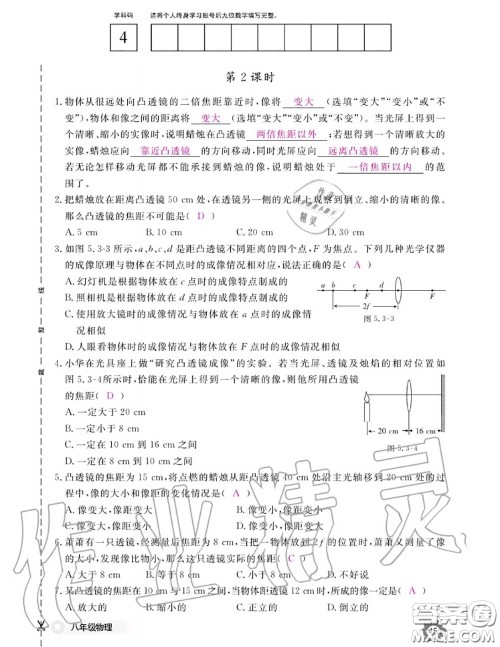 学科码 请将个人终身学习报号后九位数字填写完整。
4
第 2 课时
1.物体从很远处向凸透镜的二倍焦距靠近时,像将 变大 (选填“变大”“变小”或“不
变”),物体和像之间的距离将 变小 (选填“变大”“变小”或“不变”)。当光屏上得到一
个清晰、缩小的实像时,说明蜡烛在 两倍焦距以外 ;若想得到一个清晰放大的
实像,蜡烛应向 靠近凸透镜 的方向移动,同时光屏应向 远离凸透镜 的方向移动。
若无论怎样移动光屏都不能承接到蜡烛的像,说明蜡烛处于 一倍焦距以内 的范
围了。
2.把蜡烛放在距离凸透镜 50 cm 处,在透镜另一侧的光屏上观察到倒立、缩小的清晰的像。
那么凸透镜的焦距不可能是( D )
A. 5 cm B. 10 cm C. 20 cm D. 30 cm
3.如图 5.3-3 所示,a、b、c、d 是距凸透镜不同距离的四个点,F 为焦点。下列几种光学仪器
的成像原理与物体在不同点时的成像情况相对应,说法正确的是( A )
A. 幻灯机是根据物体放在 c 点时的成像特点制成的
B. 照相机是根据物体放在 d 点时的成像特点制成的
C. 使用放大镜时的成像情况与物体放在 a 点时的成像情
况相似
D. 人眼看物体时的成像情况与物体放在 b 点时的成像情况相似
a b c F d F
2f
图 5.3-3
4.小华在光具座上做“研究凸透镜成像”的实验。若当光屏、透镜及烛焰的相对位置如
图5.3-4所示时,恰能在光屏上得到一个清晰的像,则他所用凸透镜
的焦距( D )
A. 一定大于 20 cm
B. 一定小于 8 cm
C. 一定在 10 cm 到 16 cm 之间
D. 一定在 8 cm 到 10 cm 之间
20 cm 16 cm
图 5.3-4
5.凸透镜的焦距为 15 cm,将点燃的蜡烛从距凸透镜 40 cm 处沿主光轴移到 20 cm 处的过
程中,像的大小和像距的变化情况是( A )
A. 像变大,像距变大 B. 像变小,像距变小
C. 像变大,像距变小 D. 像变小,像距变大
6.萧萧有一只透镜,经测量后焦距为 8 cm,当把一物体放到 2 倍焦距之外时,萧萧又测量了像
的大小,发现像比物小,那么这只透镜实际的焦距( C )
A. 大于 8 cm B. 等于 8 cm C. 小于 8 cm D. 小于 5 cm
7.某凸透镜的焦距在 10 cm 与 15 cm 之间,当物体距透镜 12 cm 时,所成的像一定是( A )
A. 放大的 B. 缩小的 C. 正立的 D. 倒立的
八年级物理
作业精灵